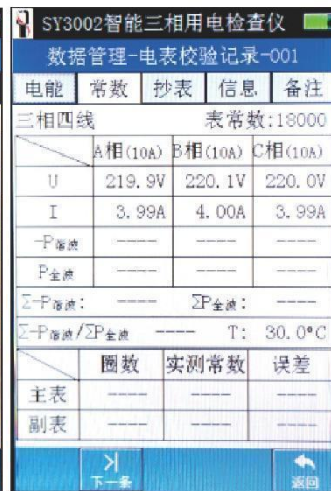 SY3002智能三相用电检查仪
数据管理-电表校验记录-001
电能 常数 抄表 信息 备注
三相四线 表常数:18000
A相(10A) B相(10A) C相(10A)
U 219.9V 220.1V 220.0V
I 3.99A 4.00A 3.99A
-P谐波 ---- ---- ----
P全波 ---- ---- ----
Σ-P谐波: ---- ΣP全波: ----
Σ-P谐波/ΣP全波 ---- T: 30.0°C
圈数 实测常数 误差
主表 ---- ---- ----
副表 ---- ---- ----
下一条 返回